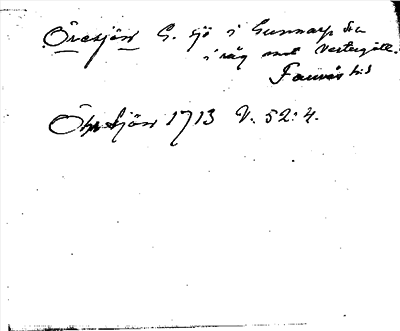 Öresjön G. sjö i Gunnarp sn
i råg mot Västergötl.
Faurås hd
Öhresjön 1713 V. 52:4.